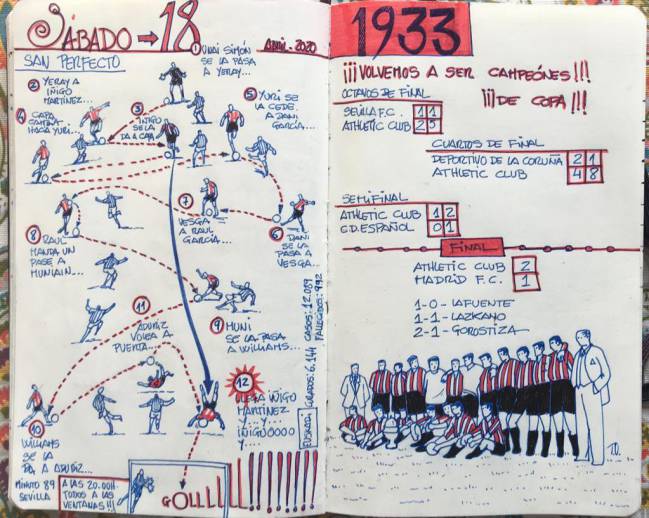 SÁBADO → 18
ABRIL - 2020
SAN PERFECTO
1 UNAI SIMÓN
SE LA PASA
A YERAY...
2 YERAY A
IÑIGO
MARTÍNEZ...
3 IÑIGO
SE LA
DA A CAPA
4 CAPA
HACIA YURI...
5 YURI SE
LA CEDE
A DANI
GARCÍA...
6 DANI
SE LA
PASA A
VESGA...
7
VESGA
A RAUL
GARCÍA...
8 RAUL
MANDA UN
PASE A
MUNIAIN...
9 MUNI
SE LA PASA
A WILLIAMS...
10
WILLIAMS
SE LA
DA A ADURIZ...
11
ADURIZ
A
PUERTA...
12
IÑIGO
MARTINEZ
Y... Y...
IÑIGOOOO
Y....
EUSKADI
CASOS: 12.089
FALLECIDOS: 992
MINUTO 89
SEVILLA
A LAS 20:00H.
TODOS A LAS
VENTANAS!!!
GOLLLL
1933
¡¡¡VOLVEMOS A SER CAMPEÓNES!!!
¡¡¡DE COPA!!!
OCTAVOS DE FINAL
SEVILLA F.C. 1 1
ATHLETIC CLUB 2 5
CUARTOS DE FINAL
DEPORTIVO DE LA CORUÑA 2 1
ATHLETIC CLUB 4 8
SEMIFINAL
ATHLETIC CLUB 1 2
C.D. ESPAÑOL 0 1
FINAL
ATHLETIC CLUB 2
MADRID F.C. 1
1-0- LAFUENTE
1-1- LAZKANO
2-1- GOROSTIZA